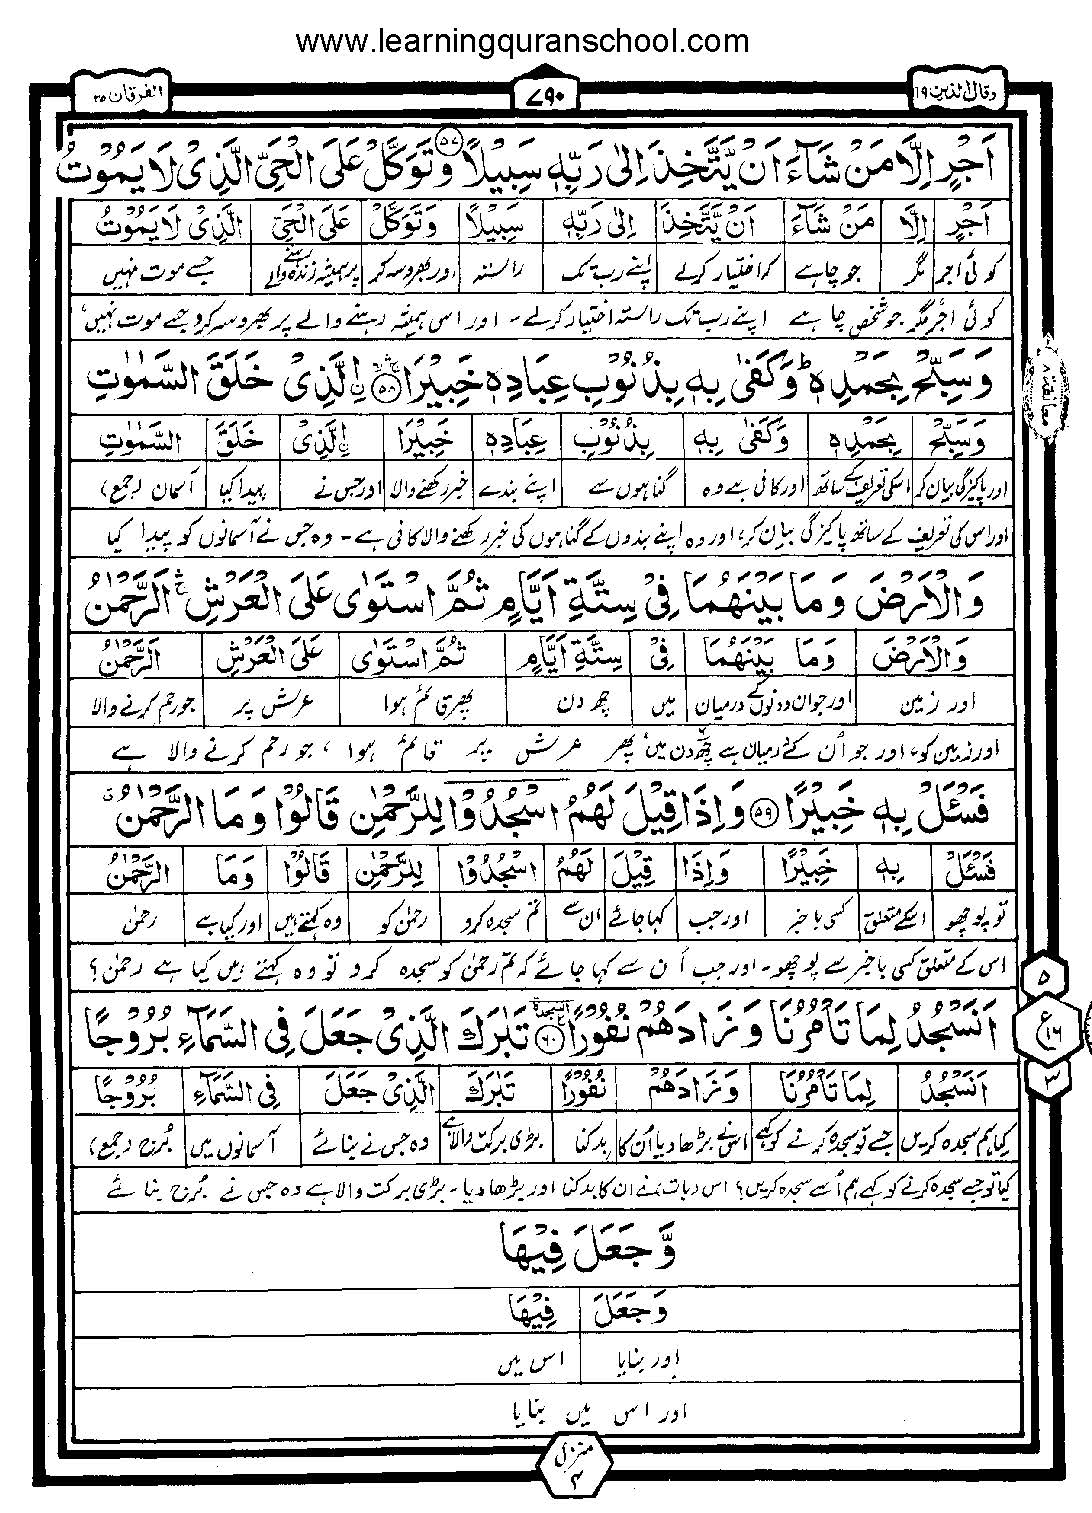 www.learningquranschool.com
وقال الذین ۱۹
۷۹۰
الفرقان ۲۵
اَجْرٍ اِلَّا مَنْ شَآءَ اَنْ یَّتَّخِذَ اِلٰی رَبِّہٖ سَبِیْلًا ۵۷ وَتَوَکَّلْ عَلَی الْحَیِّ الَّذِیْ لَا یَمُوْتُ
اَجْرٍ اِلَّا مَنْ شَآءَ اَنْ یَّتَّخِذَ اِلٰی رَبِّہٖ سَبِیْلًا وَتَوَکَّلْ عَلَی الْحَیِّ الَّذِیْ لَا یَمُوْتُ
کوئی اجر مگر جو چاہے کہ اختیار کرلے اپنے رب تک راستہ اور بھروسہ کر پر ہمیشہ زندہ رہنے والے جسے موت نہیں
کوئی اجر مگر جو شخص چاہے اپنے رب تک راستہ اختیار کرلے۔ اور اس ہمیشہ رہنے والے پر بھروسہ کرو جسے موت نہیں،
وَسَبِّحْ بِحَمْدِہٖ ؕ وَکَفٰی بِہٖ بِذُنُوْبِ عِبَادِہٖ خَبِیْرًا ۵۸ الَّذِیْ خَلَقَ السَّمٰوٰتِ
وَسَبِّحْ بِحَمْدِہٖ وَکَفٰی بِہٖ بِذُنُوْبِ عِبَادِہٖ خَبِیْرًا الَّذِیْ خَلَقَ السَّمٰوٰتِ
اور پاکیزگی بیان کر اسکی تعریف کے ساتھ اور کافی ہے وہ گناہوں سے اپنے بندے خبر رکھنے والا اور جس نے پیدا کیا آسمان (جمع)
اور اس کی تعریف کے ساتھ پاکیزگی بیان کر، اور وہ اپنے بندوں کے گناہوں کی خبر رکھنے والا کافی ہے۔ وہ جس نے آسمانوں کو پیدا کیا
وَالْاَرْضَ وَمَا بَیْنَہُمَا فِیْ سِتَّۃِ اَیَّامٍ ثُمَّ اسْتَوٰی عَلَی الْعَرْشِ ۚ اَلرَّحْمٰنُ
وَالْاَرْضَ وَمَا بَیْنَہُمَا فِیْ سِتَّۃِ اَیَّامٍ ثُمَّ اسْتَوٰی عَلَی الْعَرْشِ اَلرَّحْمٰنُ
اور زمین اور جو ان دونوں کے درمیان میں چھ دن پھر قائم ہوا عرش پر جو رحم کرنے والا
اور زمین کو، اور جو اُن کے درمیان ہے چھ دن میں، پھر عرش پر قائم ہوا، جو رحم کرنے والا ہے
فَسْـَٔلْ بِہٖ خَبِیْرًا ۵۹ وَاِذَا قِیْلَ لَہُمُ اسْجُدُوْا لِلرَّحْمٰنِ قَالُوْا وَمَا الرَّحْمٰنُ
فَسْـَٔلْ بِہٖ خَبِیْرًا وَاِذَا قِیْلَ لَہُمُ اسْجُدُوْا لِلرَّحْمٰنِ قَالُوْا وَمَا الرَّحْمٰنُ
تو پوچھو اسکے متعلق کسی باخبر اور جب کہا جائے ان سے تم سجدہ کرو رحمٰن کو وہ کہتے ہیں اور کیا ہے رحمٰن
اس کے متعلق کسی باخبر سے پوچھو۔ اور جب اُن سے کہا جائے کہ تم رحمٰن کو سجدہ کرو تو وہ کہتے ہیں کیا ہے رحمٰن؟
اَنَسْجُدُ لِمَا تَاْمُرُنَا وَزَادَہُمْ نُفُوْرًا ۶۰ تَبٰرَکَ الَّذِیْ جَعَلَ فِی السَّمَآءِ بُرُوْجًا
اَنَسْجُدُ لِمَا تَاْمُرُنَا وَزَادَہُمْ نُفُوْرًا تَبٰرَکَ الَّذِیْ جَعَلَ فِی السَّمَآءِ بُرُوْجًا
کیا ہم سجدہ کریں جسے تو سجدہ کرنے کو کہے اس نے بڑھا دیا اُن کا بدکنا بڑی برکت والا ہے وہ جس نے بنائے آسمانوں میں بُرج (جمع)
کیا تو جسے سجدہ کرنے کو کہے ہم اُسے سجدہ کریں؟ اس (بات) نے ان کا بدکنا اور بڑھا دیا۔ بڑی برکت والا ہے وہ جس نے بُرج بنائے
وَّجَعَلَ فِیْہَا
وَجَعَلَ فِیْہَا
اور بنایا اس میں
اور اس میں بنایا
معانقة ۸
۵
ع ۱۶
۳
منزل ۴